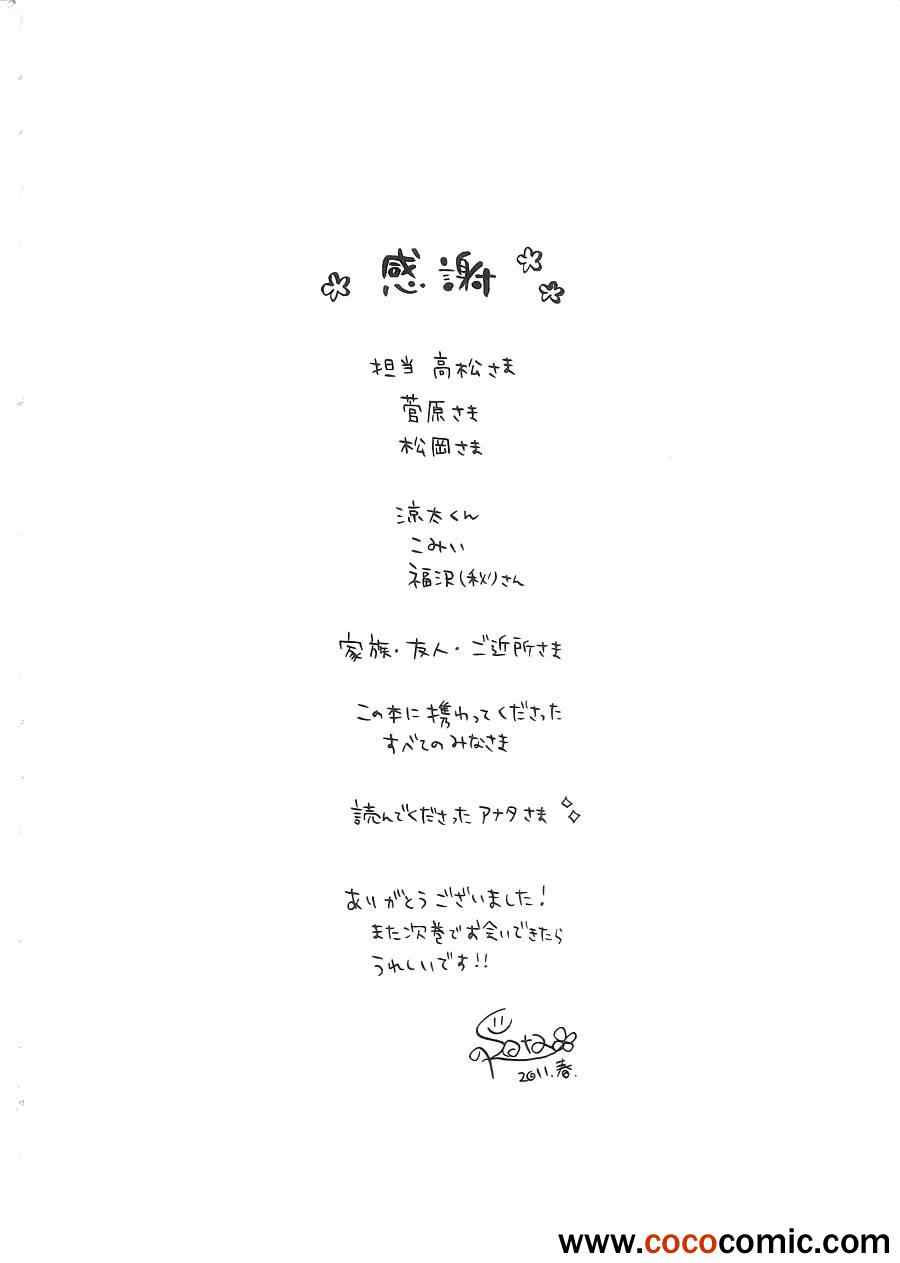 感謝
担当 高松さま
菅原さま
松岡さま
涼太くん
こみぃ
福沢(秋)さん
家族・友人・ご近所さま
この本に携わってくださった
すべてのみなさま
読んでくださったアナタさま
ありがとうございました!
また次巻でお会いできたら
うれしいです!!
2011.春.
www.cococomic.com